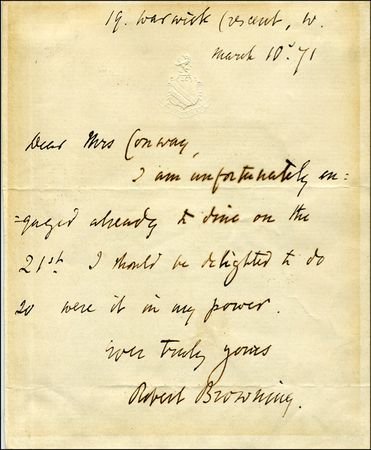 19. Warwick Crescent, W.
March 10. 71
Dear Mrs Conway,
I am unfortunately en=
=gaged already to dine on the
21st. I should be delighted to do
so were it in my power.
Ever truly yours
Robert Browning.